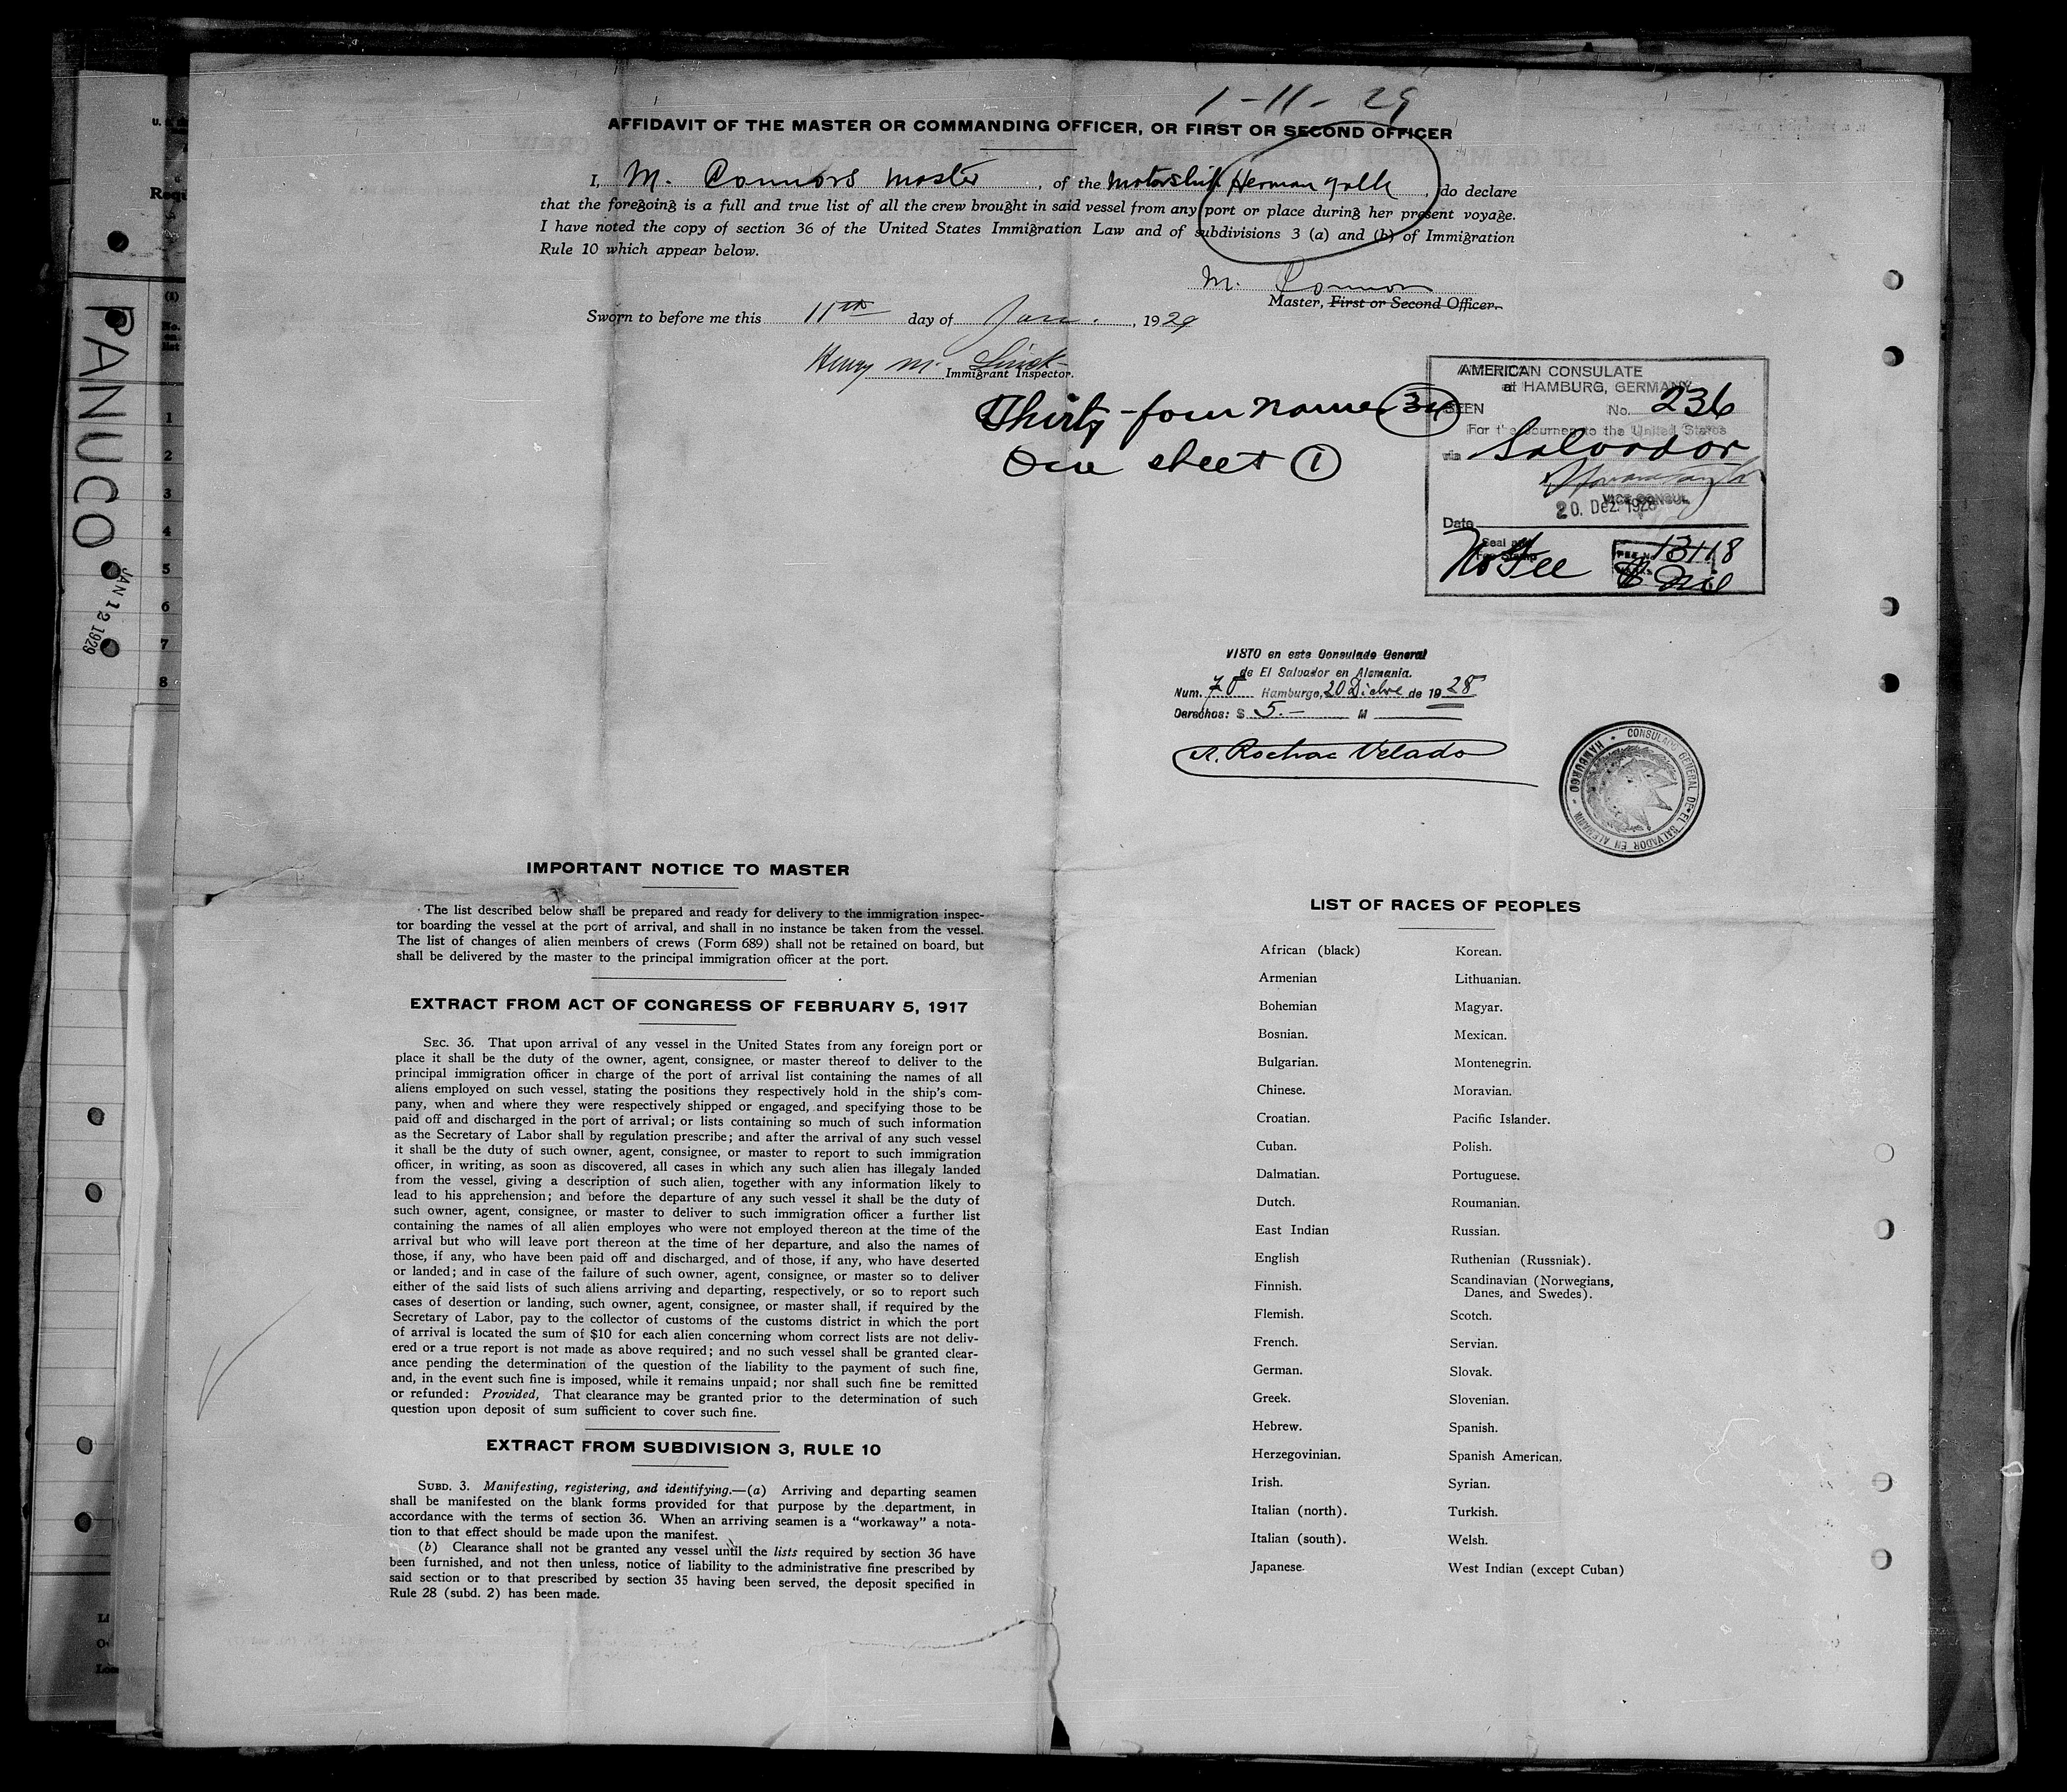 1-11-29
AFFIDAVIT OF THE MASTER OR COMMANDING OFFICER, OR FIRST OR SECOND OFFICER
I, M. Connors Master, of the Motorship Herman, do declare
that the foregoing is a full and true list of all the crew brought in said vessel from any port or place during her present voyage.
I have noted the copy of section 36 of the United States Immigration Law and of subdivisions 3 (a) and (b) of Immigration
Rule 10 which appear below.
M. Connors
Master, First or Second Officer.
Sworn to before me this 11th day of Jan., 1929
Henry M.
Immigrant Inspector.
Thirty-four names 34
One sheet 1
AMERICAN CONSULATE
at HAMBURG, GERMANY
SEEN No. 236
For the journey to the United States
via Salvador
VICE CONSUL
20. Dez. 1928
Date
Seal and
Fee Stamp
No Fee
FEE No. 13118
Nil
VISTO en este Consulado General
de El Salvador en Alemania.
Num. 70 Hamburgo, 20 Dicbre de 1928
Derechos: $ 5.- M
A. Rochac Velado
CONSULADO GENERAL DE EL SALVADOR EN ALEMANIA · HAMBURGO ·
IMPORTANT NOTICE TO MASTER
The list described below shall be prepared and ready for delivery to the immigration inspec-
tor boarding the vessel at the port of arrival, and shall in no instance be taken from the vessel.
The list of changes of alien members of crews (Form 689) shall not be retained on board, but
shall be delivered by the master to the principal immigration officer at the port.
EXTRACT FROM ACT OF CONGRESS OF FEBRUARY 5, 1917
SEC. 36. That upon arrival of any vessel in the United States from any foreign port or
place it shall be the duty of the owner, agent, consignee, or master thereof to deliver to the
principal immigration officer in charge of the port of arrival list containing the names of all
aliens employed on such vessel, stating the positions they respectively hold in the ship's com-
pany, when and where they were respectively shipped or engaged, and specifying those to be
paid off and discharged in the port of arrival; or lists containing so much of such information
as the Secretary of Labor shall by regulation prescribe; and after the arrival of any such vessel
it shall be the duty of such owner, agent, consignee, or master to report to such immigration
officer, in writing, as soon as discovered, all cases in which any such alien has illegaly landed
from the vessel, giving a description of such alien, together with any information likely to
lead to his apprehension; and before the departure of any such vessel it shall be the duty of
such owner, agent, consignee, or master to deliver to such immigration officer a further list
containing the names of all alien employes who were not employed thereon at the time of the
arrival but who will leave port thereon at the time of her departure, and also the names of
those, if any, who have been paid off and discharged, and of those, if any, who have deserted
or landed; and in case of the failure of such owner, agent, consignee, or master so to deliver
either of the said lists of such aliens arriving and departing, respectively, or so to report such
cases of desertion or landing, such owner, agent, consignee, or master shall, if required by the
Secretary of Labor, pay to the collector of customs of the customs district in which the port
of arrival is located the sum of $10 for each alien concerning whom correct lists are not deliv-
ered or a true report is not made as above required; and no such vessel shall be granted clear-
ance pending the determination of the question of the liability to the payment of such fine,
and, in the event such fine is imposed, while it remains unpaid; nor shall such fine be remitted
or refunded: Provided, That clearance may be granted prior to the determination of such
question upon deposit of sum sufficient to cover such fine.
EXTRACT FROM SUBDIVISION 3, RULE 10
SUBD. 3. Manifesting, registering, and identifying.—(a) Arriving and departing seamen
shall be manifested on the blank forms provided for that purpose by the department, in
accordance with the terms of section 36. When an arriving seamen is a "workaway" a nota-
tion to that effect should be made upon the manifest.
(b) Clearance shall not be granted any vessel until the lists required by section 36 have
been furnished, and not then unless, notice of liability to the administrative fine prescribed by
said section or to that prescribed by section 35 having been served, the deposit specified in
Rule 28 (subd. 2) has been made.
LIST OF RACES OF PEOPLES
African (black)
Armenian
Bohemian
Bosnian.
Bulgarian.
Chinese.
Croatian.
Cuban.
Dalmatian.
Dutch.
East Indian
English
Finnish.
Flemish.
French.
German.
Greek.
Hebrew.
Herzegovinian.
Irish.
Italian (north).
Italian (south).
Japanese.
Korean.
Lithuanian.
Magyar.
Mexican.
Montenegrin.
Moravian.
Pacific Islander.
Polish.
Portuguese.
Roumanian.
Russian.
Ruthenian (Russniak).
Scandinavian (Norwegians,
Danes, and Swedes).
Scotch.
Servian.
Slovak.
Slovenian.
Spanish.
Spanish American.
Syrian.
Turkish.
Welsh.
West Indian (except Cuban)
PANUCO
JAN 12 1929
(1)
No.
on
list
1
2
3
4
5
6
7
8